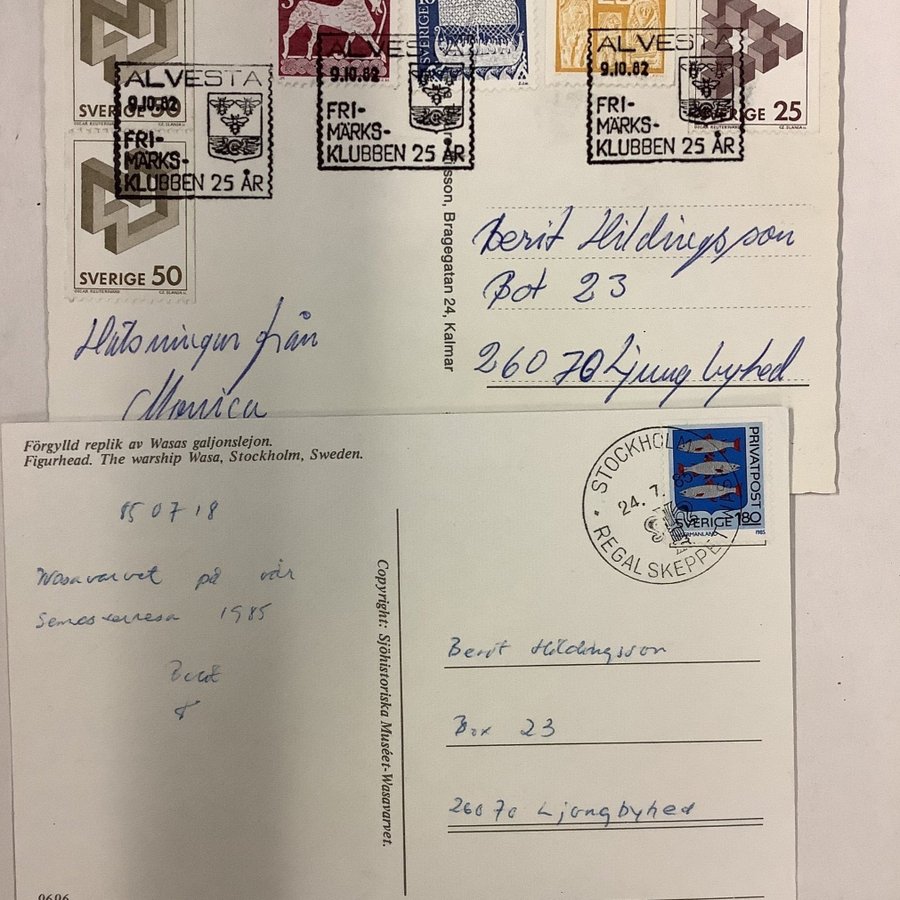 SVERIGE 50
3
SVERIGE 10
25
SVERIGE 25
OSCAR REUTERSVÄRD CZ. SLANIA sc.
ALVESTA
9.10.82
FRI-
MÄRKS-
KLUBBEN 25 ÅR
ALVESTA
9.10.82
FRI-
MÄRKS-
KLUBBEN 25 ÅR
ALVESTA
9.10.82
FRI-
MÄRKS-
KLUBBEN 25 ÅR
SVERIGE 50
OSCAR REUTERSVÄRD CZ. SLANIA sc.
sson, Bragegatan 24, Kalmar
Berit Hildingsson
Box 23
260 70 Ljungbyhed
Hälsningar från
Monica
Förgylld replik av Wasas galjonslejon.
Figurhead. The warship Wasa, Stockholm, Sweden.
STOCKHOLM
24.7.85
REGALSKEPPET WASA
PRIVATPOST
SVERIGE 180
1985
850718
Wasavarvet på vår
Semesterresa 1985
Berit
Copyright: Sjöhistoriska Muséet-Wasavarvet.
Berit Hildingsson
Box 23
26070 Ljungbyhed